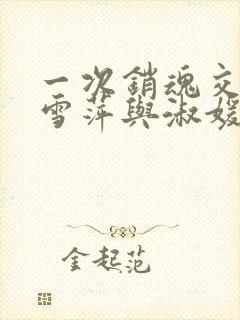 一次銷魂交
雪萍與淑媛
金起范